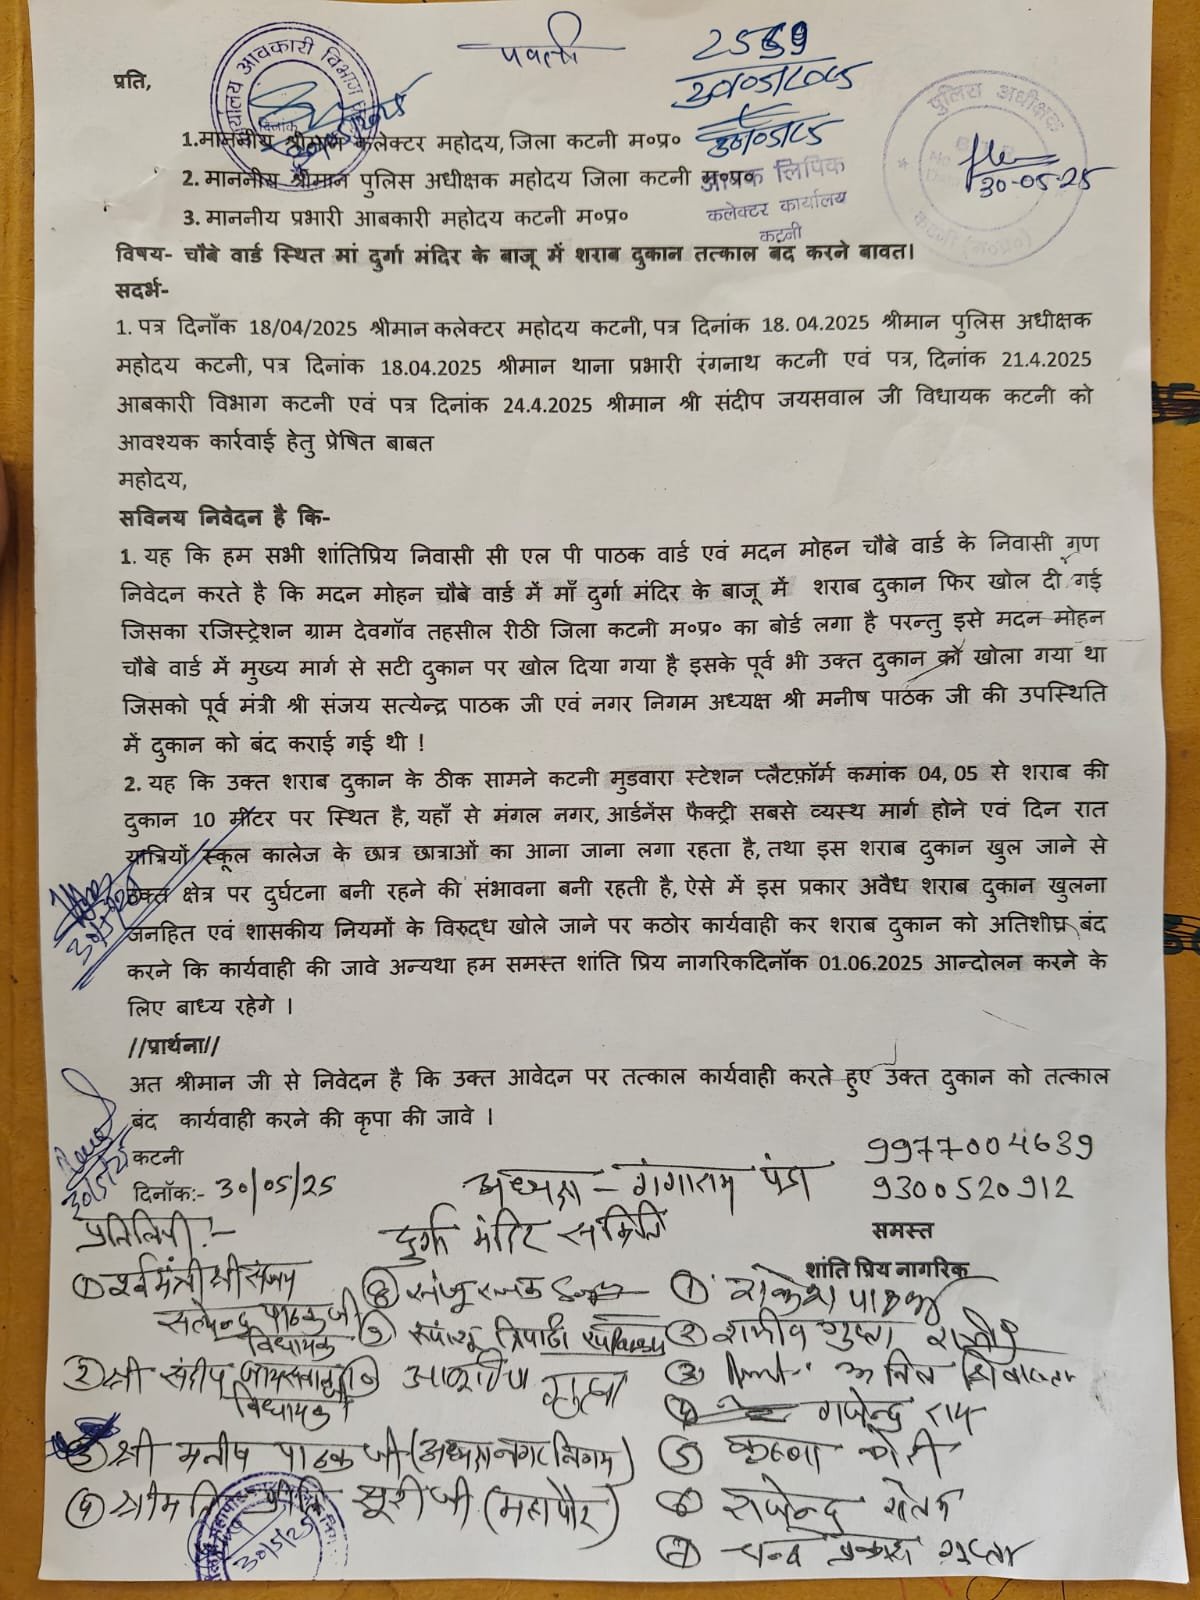 पावती
2559
30/05/2025
30/05/25
कार्यालय आबकारी विभाग
दिनांक
पुलिस अधीक्षक
कटनी (म०प्र०)
30-05-25
प्रति,
1.माननीय श्रीमान कलेक्टर महोदय, जिला कटनी म०प्र०
2. माननीय श्रीमान पुलिस अधीक्षक महोदय जिला कटनी म०प्र०
आवक लिपिक
कलेक्टर कार्यालय
कटनी
3. माननीय प्रभारी आबकारी महोदय कटनी म०प्र०
विषय- चौबे वार्ड स्थित मां दुर्गा मंदिर के बाजू में शराब दुकान तत्काल बंद करने बावत।
सदर्भ-
1. पत्र दिनाँक 18/04/2025 श्रीमान कलेक्टर महोदय कटनी, पत्र दिनांक 18. 04.2025 श्रीमान पुलिस अधीक्षक
महोदय कटनी, पत्र दिनांक 18.04.2025 श्रीमान थाना प्रभारी रंगनाथ कटनी एवं पत्र, दिनांक 21.4.2025
आबकारी विभाग कटनी एवं पत्र दिनांक 24.4.2025 श्रीमान श्री संदीप जयसवाल जी विधायक कटनी को
आवश्यक कार्रवाई हेतु प्रेषित बाबत
महोदय,
सविनय निवेदन है कि-
1. यह कि हम सभी शांतिप्रिय निवासी सी एल पी पाठक वार्ड एवं मदन मोहन चौबे वार्ड के निवासी गण
निवेदन करते है कि मदन मोहन चौबे वार्ड में माँ दुर्गा मंदिर के बाजू में शराब दुकान फिर खोल दी गई
जिसका रजिस्ट्रेशन ग्राम देवगॉव तहसील रीठी जिला कटनी म०प्र० का बोर्ड लगा है परन्तु इसे मदन मोहन
चौबे वार्ड में मुख्य मार्ग से सटी दुकान पर खोल दिया गया है इसके पूर्व भी उक्त दुकान को खोला गया था
जिसको पूर्व मंत्री श्री संजय सत्येन्द्र पाठक जी एवं नगर निगम अध्यक्ष श्री मनीष पाठक जी की उपस्थिति
में दुकान को बंद कराई गई थी !
2. यह कि उक्त शराब दुकान के ठीक सामने कटनी मुडवारा स्टेशन प्लैटफ़ॉर्म कमांक 04, 05 से शराब की
दुकान 10 मीटर पर स्थित है, यहाँ से मंगल नगर, आर्डनेंस फैक्ट्री सबसे व्यस्थ मार्ग होने एवं दिन रात
यात्रियों स्कूल कालेज के छात्र छात्राओं का आना जाना लगा रहता है, तथा इस शराब दुकान खुल जाने से
उक्त क्षेत्र पर दुर्घटना बनी रहने की संभावना बनी रहती है, ऐसे में इस प्रकार अवैध शराब दुकान खुलना
जनहित एवं शासकीय नियमों के विरुद्ध खोले जाने पर कठोर कार्यवाही कर शराब दुकान को अतिशीघ्र बंद
करने कि कार्यवाही की जावे अन्यथा हम समस्त शांति प्रिय नागरिकदिनॉक 01.06.2025 आन्दोलन करने के
लिए बाध्य रहेगे ।
30/5/2025
//प्रार्थना//
अत श्रीमान जी से निवेदन है कि उक्त आवेदन पर तत्काल कार्यवाही करते हुए उक्त दुकान को तत्काल
बंद कार्यवाही करने की कृपा की जावे ।
30/5/25
कटनी
दिनॉक:- 30/05/25
अध्यक्ष - गंगाराम पंडा
दुर्गा मंदिर समिति
9977004639
9300520912
समस्त
शांति प्रिय नागरिक
प्रतिलिपी :-
① पूर्व मंत्री श्री संजय
सत्येन्द्र पाठक जी
विधायक
② श्री संदीप जायसवाल जी
विधायक
③ श्री मनीष पाठक जी (अध्यक्ष नगर निगम)
④ श्रीमति प्रीति सूरी जी (महापौर)
30/5/25
⑧ संजू रजक
⑨ त्रिपाठी
गुप्ता
① राकेश पाठक
② राजीव गुप्ता
③ अनिल
④ गजेन्द्र राय
⑤ कृष्णा
⑥ राजेन्द्र
⑦ चन्द्र प्रकाश गुप्ता